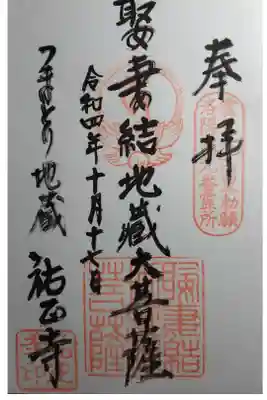 奉拝
娶妻結地蔵大菩薩
令和四年十月十七日
つまのとり地蔵
祐正寺